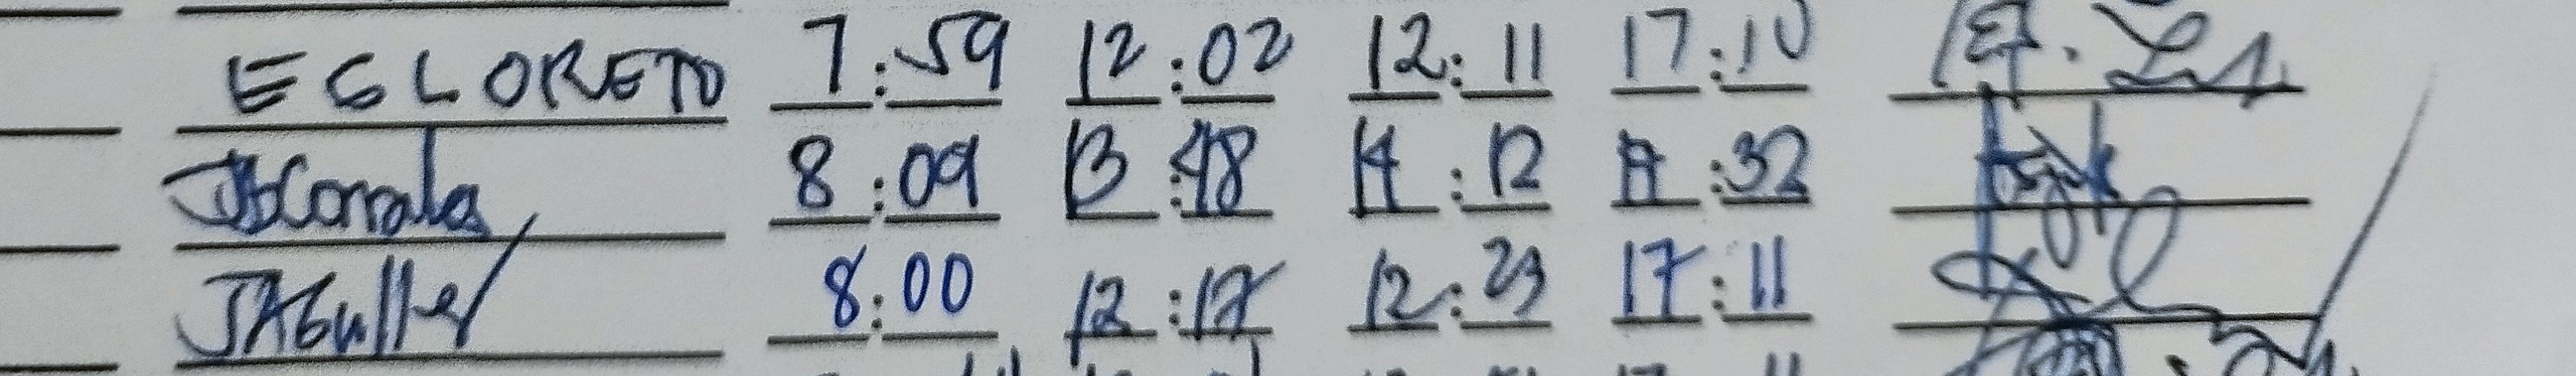 ESLORETO 7:59 12:02 12:11 17:10
JBCorrales 8:09 13:48 14:12 17:32
JAGuller 8:00 12:17 12:23 17:11